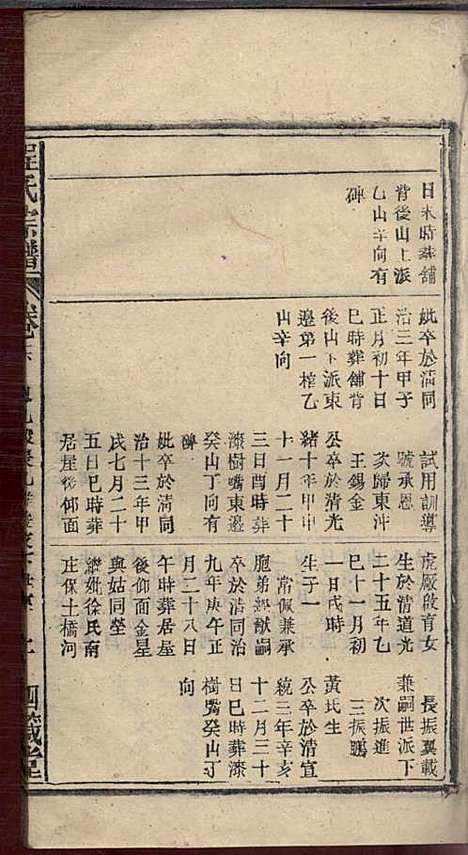 日未時葬舖
背後山上派
乙山辛向有
碑
妣卒於清同
治三年甲子
正月初十日
巳時葬舖背
後山下派東
邊第一棺乙
山辛向
試用訓導
號承恩
次歸東沖
王錫金
公卒於清光
緒十年甲申
十一月二十
三日酉時葬
漆樹嘴東邊
癸山丁向有
碑
妣卒於清同
治十三年甲
戌七月二十
五日巳時葬
居屋後仰面
虎廠啟育女
生於清道光
二十五年乙
巳十一月初
一日戌時
生子一
常佩兼承
胞弟經猷嗣
卒於清同治
九年庚午正
月二十八日
午時葬居屋
後仰面金星
與姑同塋
繼妣徐氏南
庄保土橋河
長振翼載
兼嗣世派下
次振進
三振鵬
黃氏生
公卒於清宣
統三年辛亥
十二月三十
日巳時葬漆
樹嘴癸山丁
向
程氏宗譜
卷